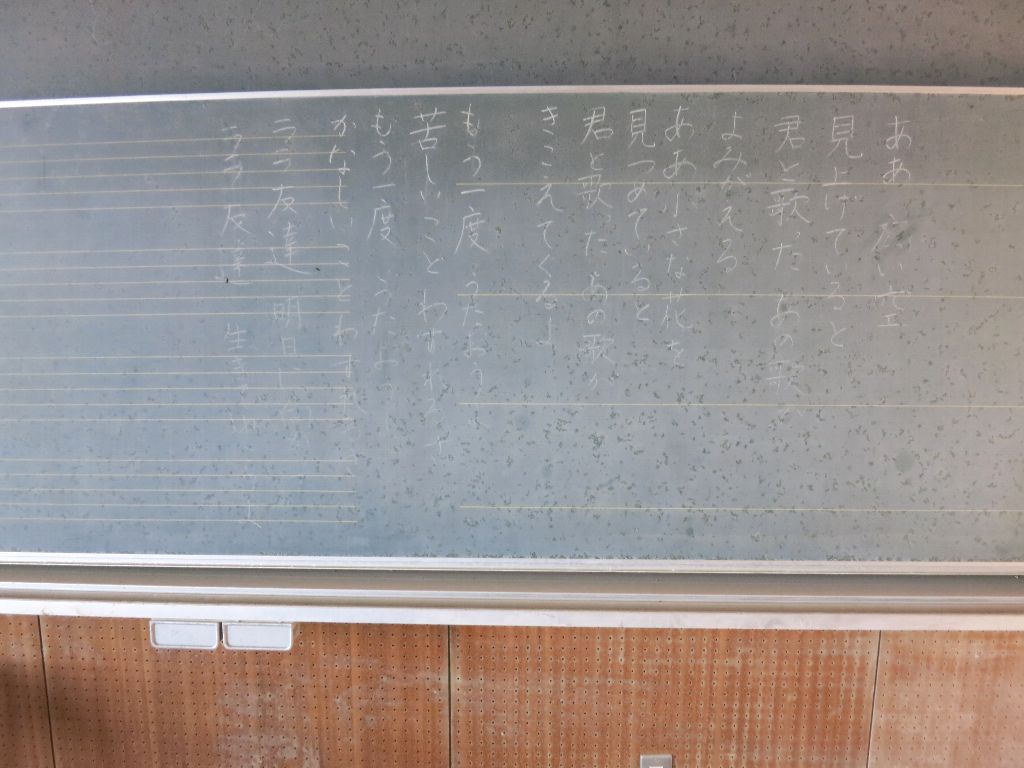 ああ 広い空
見上げていると
君と歌った あの歌が
よみがえる
ああ小さな花を
見つめていると
君と歌った あの歌が
きこえてくるよ
もう一度 うたおうよ
苦しいこと わすれ
もう一度 うたおう
かなしいことわすれ
ララ友達 明日
ララ友達 生き